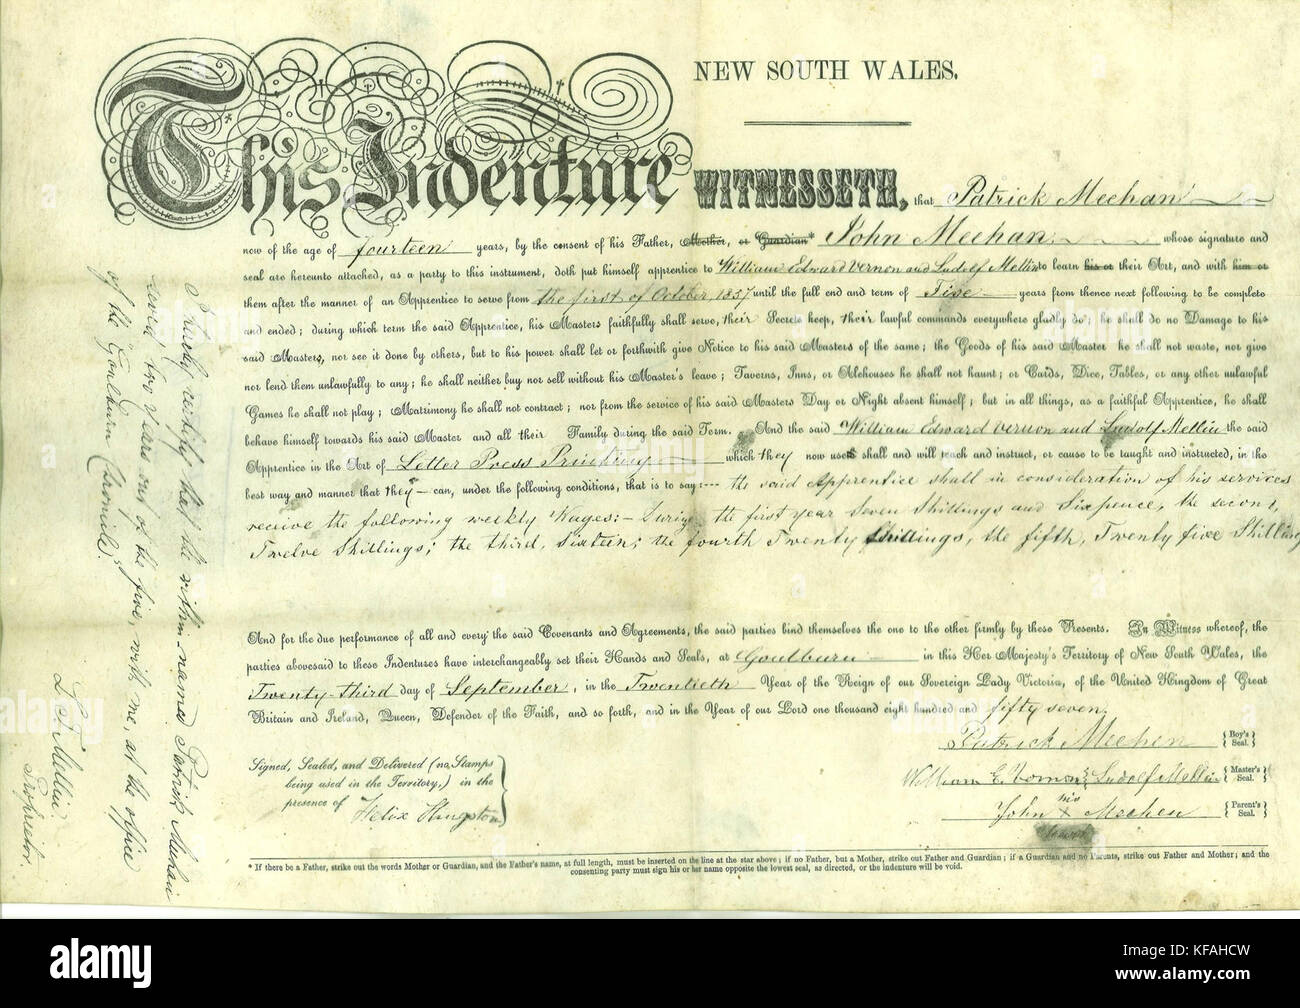 NEW SOUTH WALES.
This Indenture WITNESSETH, that Patrick Meehan
now of the age of fourteen years, by the consent of his Father, Mother, or Guardian* John Meehan whose signature and
seal are hereunto attached, as a party to this instrument, doth put himself apprentice to William Edward Vernon and Ludolf Mellin to learn his or their Art, and with him or
them after the manner of an Apprentice to serve from the first of October, 1857 until the full end and term of Five years from thence next following to be complete
and ended; during which term the said Apprentice, his Masters faithfully shall serve, their Secrets keep, their lawful commands everywhere gladly do; he shall do no Damage to his
said Masters, nor see it done by others, but to his power shall let or forthwith give Notice to his said Masters of the same; the Goods of his said Master he shall not waste, nor give
nor lend them unlawfully to any; he shall neither buy nor sell without his Master's leave; Taverns, Inns, or Alehouses he shall not haunt; or Cards, Dice, Tables, or any other unlawful
Games he shall not play; Matrimony he shall not contract; nor from the service of his said Masters Day or Night absent himself; but in all things, as a faithful Apprentice, he shall
behave himself towards his said Master and all their Family during the said Term. And the said William Edward Vernon and Ludolf Mellin the said
Apprentice in the Art of Letter Press Printing which they now use shall and will teach and instruct, or cause to be taught and instructed, in the
best way and manner that they can, under the following conditions, that is to say:— the said Apprentice shall in consideration of his services
receive the following weekly Wages:— During the first year Seven Shillings and Sixpence, the second,
Twelve Shillings; the third, Sixteen; the fourth Twenty Shillings, the fifth, Twenty five Shillings
And for the due performance of all and every the said Covenants and Agreements, the said parties bind themselves the one to the other firmly by these Presents. In Witness whereof, the
parties abovesaid to these Indentures have interchangeably set their Hands and Seals, at Goulburn in this Her Majesty's Territory of New South Wales, the
Twenty-third day of September, in the Twentieth Year of the Reign of our Sovereign Lady Victoria, of the United Kingdom of Great
Britain and Ireland, Queen, Defender of the Faith, and so forth, and in the Year of our Lord one thousand eight hundred and fifty seven.
Patrick Meehen Boy's Seal.
William E. Vernon & Ludolf Mellin Master's Seal.
John his x Meehen Parent's Seal.
mark
Signed, Sealed, and Delivered (no Stamps
being used in the Territory,) in the
presence of
* If there be a Father, strike out the words Mother or Guardian, and the Father's name, at full length, must be inserted on the line at the star above; if no Father, but a Mother, strike out Father and Guardian; if a Guardian and no Parents, strike out Father and Mother; and the
consenting party must sign his or her name opposite the lowest seal, as directed, or the indenture will be void.
I hereby certify that the within-named Patrick Meehan
served two years out of the five, with me, at the office
of the "Goulburn Chronicle."
L. Mellin
Proprietor.
alamy
alamy
Image ID: KFAHCW
www.alamy.com